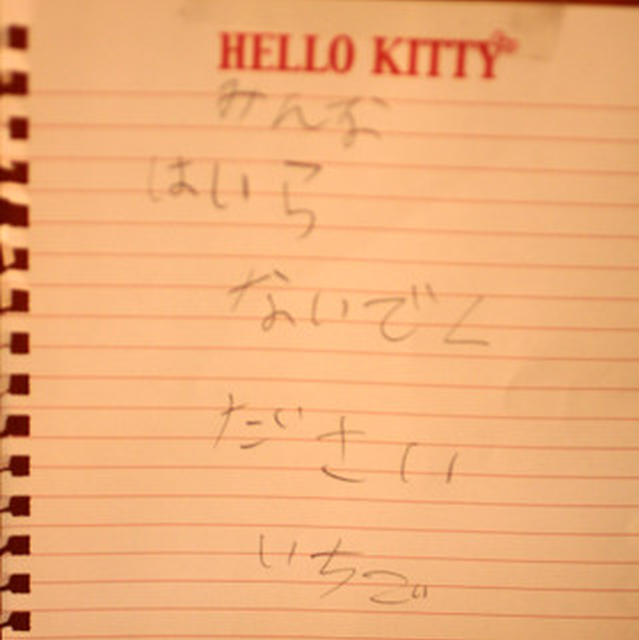 HELLO KITTY
みんな
はいら
ないでく
ださい
いちご